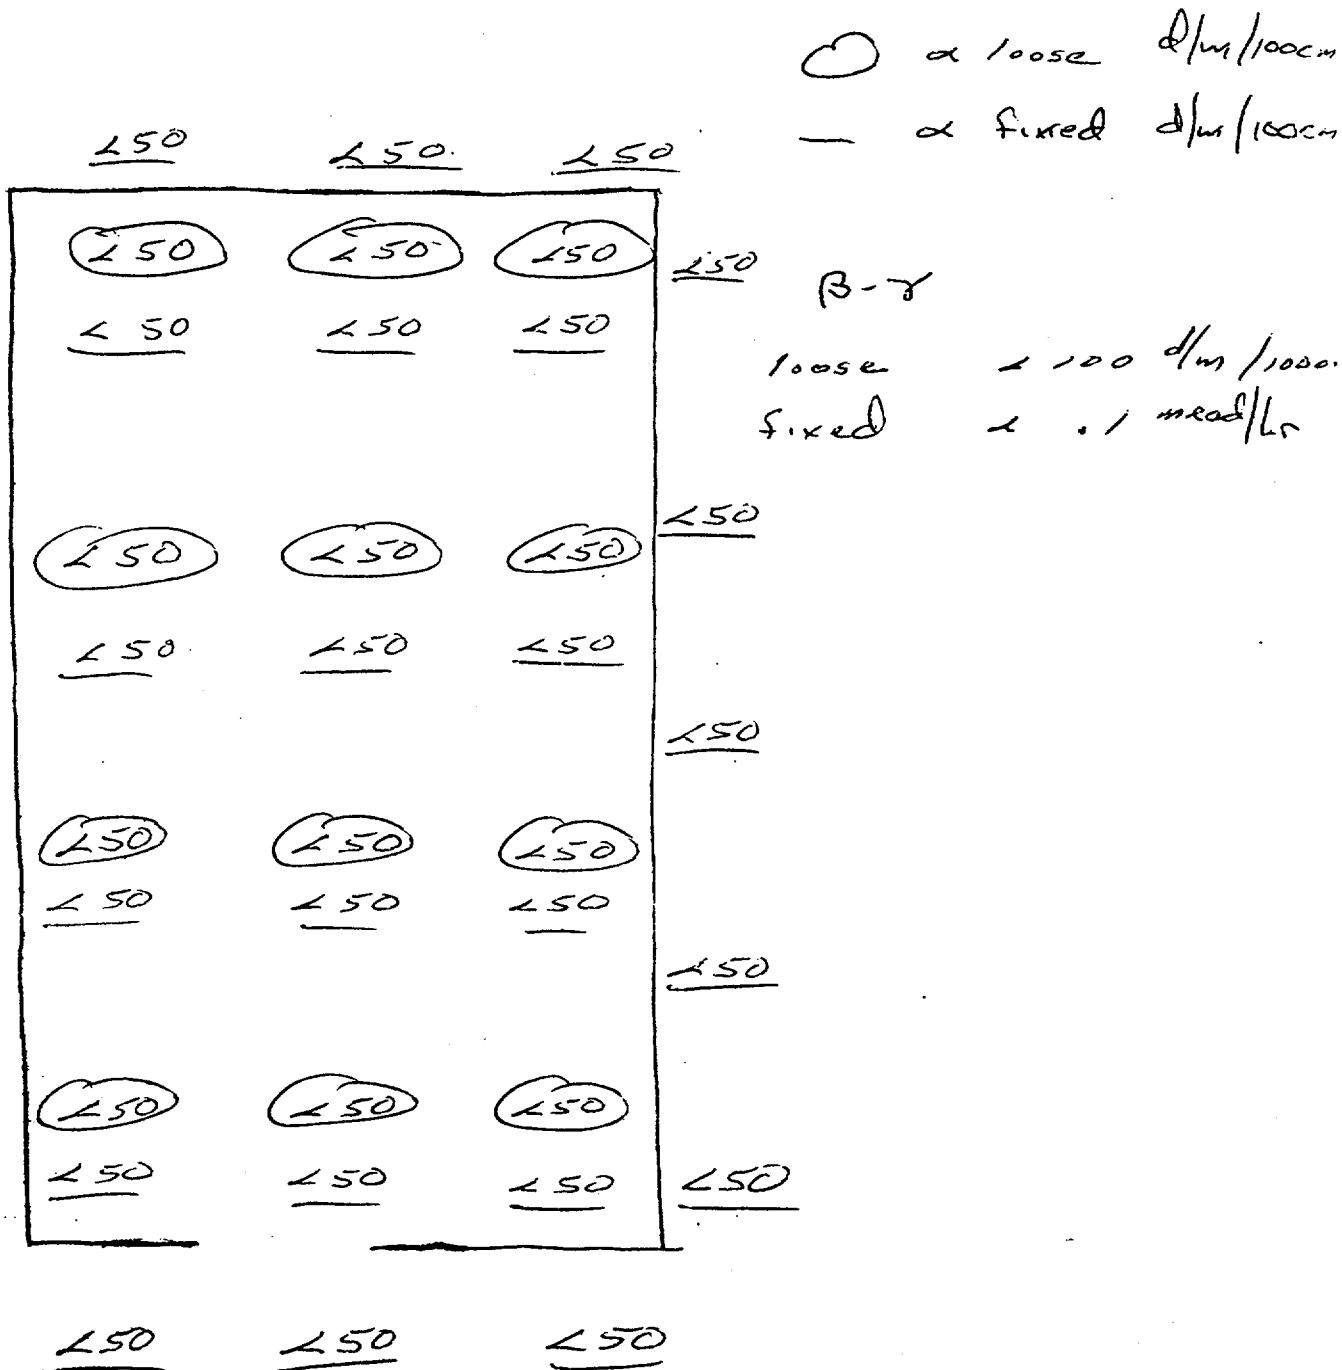 α loose d/m/100cm
— α fixed d/m/100cm
<50 <50 <50
<50 <50 <50 <50
<50 <50 <50
β-γ
loose < 100 d/m/100c
fixed < .1 mrad/hr
<50 <50 <50 <50
<50 <50 <50
<50
<50 <50 <50
<50 <50 <50
<50
<50 <50 <50
<50 <50 <50 <50
<50 <50 <50